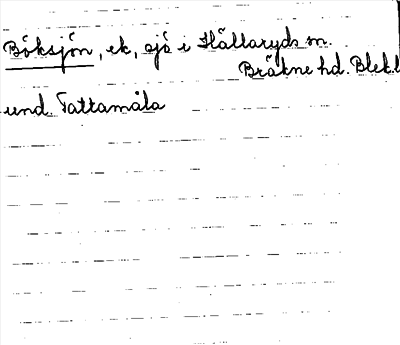 Böksjön, ek, sjö i Hällaryds sn.
Bräkne hd. Blek.l
und. Tattamåla